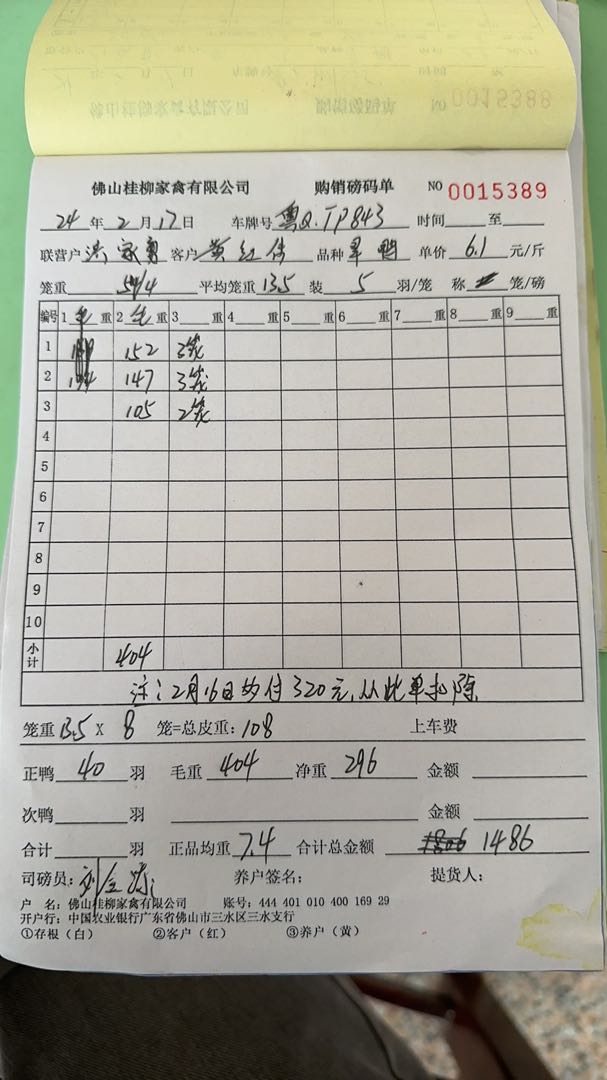 佛山桂柳家禽有限公司 购销磅码单 NO 0015389
24年2月17日 车牌号 粤Q.TP843 时间 至
联营户 客户 黄红伟 品种 旱鸭 单价 6.1 元/斤
笼重 54/4 平均笼重 13.5 装 5 羽/笼 称 笼/磅
编号 1 毛 重 2 毛 重 3 重 4 重 5 重 6 重 7 重 8 重 9 重
1 152 3笼
2 147 3笼
3 105 2笼
4
5
6
7
8
9
10
小计 404
注：2月16日 付320元，从此单扣除
笼重 13.5 X 8 笼=总皮重：108 上车费
正鸭 40 羽 毛重 404 净重 296 金额
次鸭 羽 金额
合计 羽 正品均重 7.4 合计总金额 1486
司磅员： 养户签名： 提货人：
户 名：佛山桂柳家禽有限公司 账号：444 401 010 400 169 29
开户行：中国农业银行广东省佛山市三水区三水支行
①存根（白） ②客户（红） ③养户（黄）